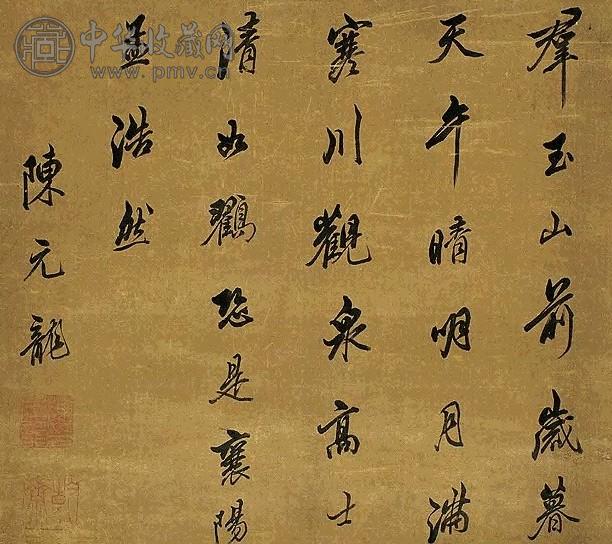 中华收藏网
www.pmv.cn
羣玉山前歲暮
天乍晴明月滿
寒川觀泉高士
清如鶴恐是襄陽
孟浩然
陳元龍